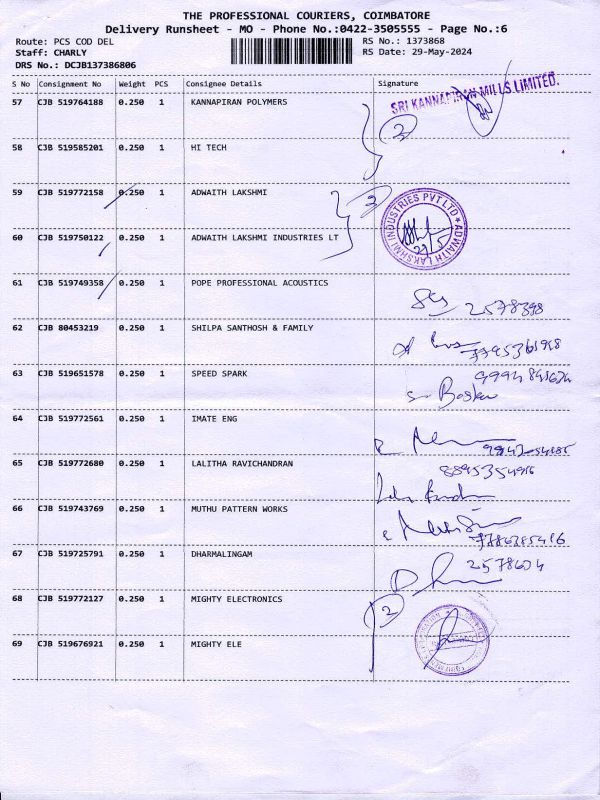 THE PROFESSIONAL COURIERS, COIMBATORE
Delivery Runsheet - MO - Phone No.:0422-3505555 - Page No.:6
Route: PCS COD DEL
RS No.: 1373868
Staff: CHARLY
RS Date: 29-May-2024
DRS No.: DCJB137386806
S No Consignment No Weight PCS Consignee Details Signature
SRI KANNAPIRAN MILLS LIMITED.
57 CJB 519764188 0.250 1 KANNAPIRAN POLYMERS
2
58 CJB 519585201 0.250 1 HI TECH
59 CJB 519772158 0.250 1 ADWAITH LAKSHMI
2
ADWAITH LAKSHMI INDUSTRIES PVT LTD
29/5
60 CJB 519750122 0.250 1 ADWAITH LAKSHMI INDUSTRIES LT
61 CJB 519749358 0.250 1 POPE PROFESSIONAL ACOUSTICS
2578398
62 CJB 80453219 0.250 1 SHILPA SANTHOSH & FAMILY
63 CJB 519651578 0.250 1 SPEED SPARK
Baskar
64 CJB 519772561 0.250 1 IMATE ENG
65 CJB 519772680 0.250 1 LALITHA RAVICHANDRAN
66 CJB 519743769 0.250 1 MUTHU PATTERN WORKS
67 CJB 519725791 0.250 1 DHARMALINGAM
68 CJB 519772127 0.250 1 MIGHTY ELECTRONICS
2
69 CJB 519676921 0.250 1 MIGHTY ELE